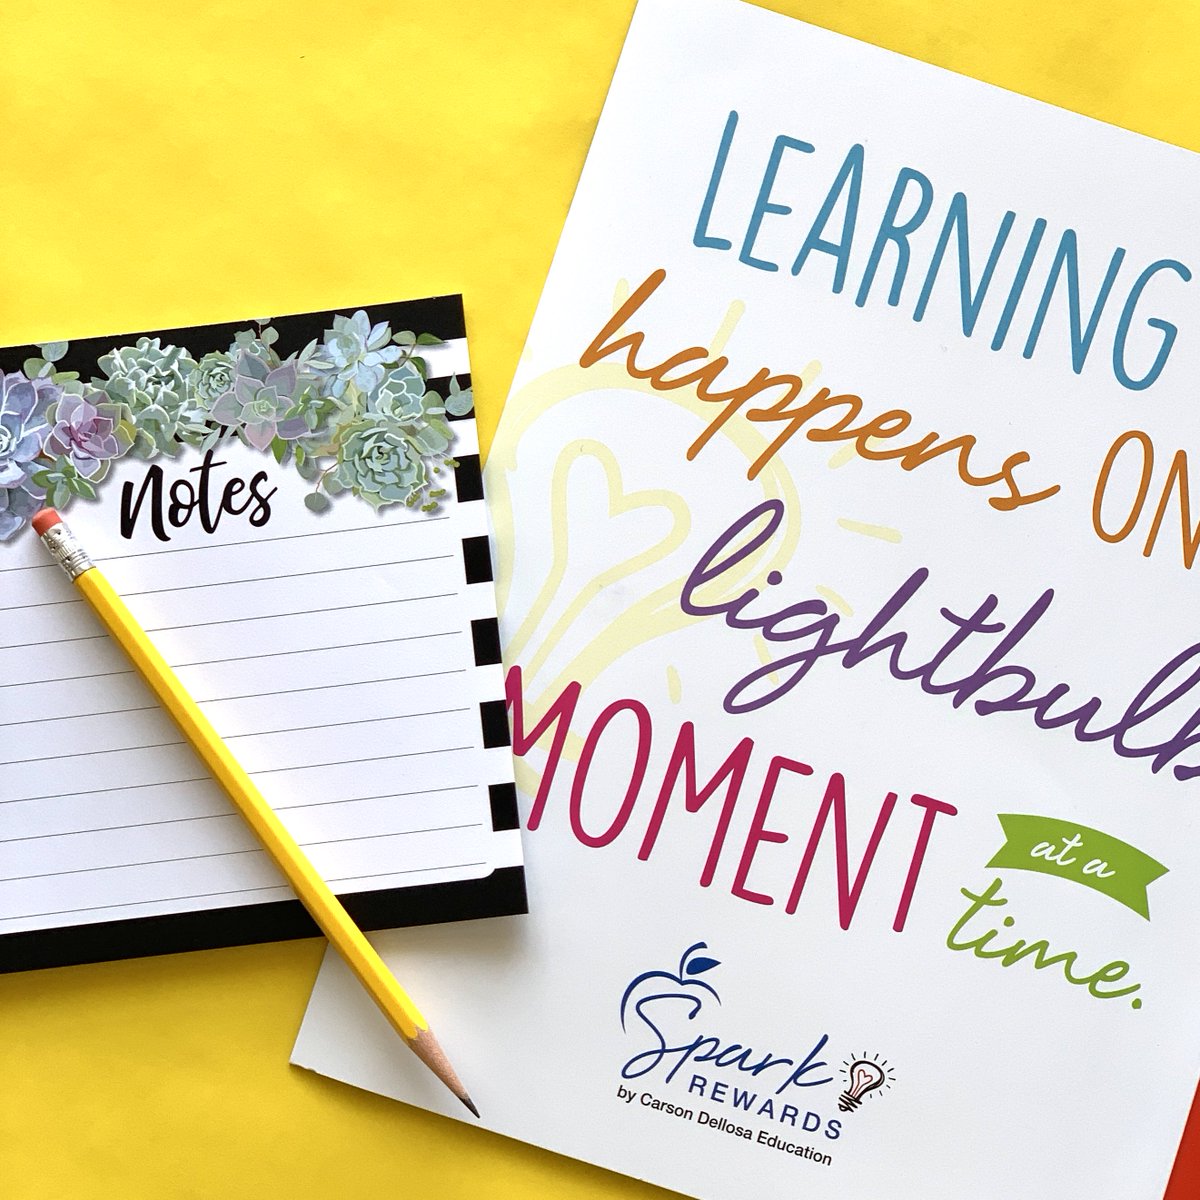 Notes
LEARNING
happens ON
lightbulb
MOMENT at a
time.
Spark
REWARDS
by Carson Dellosa Education